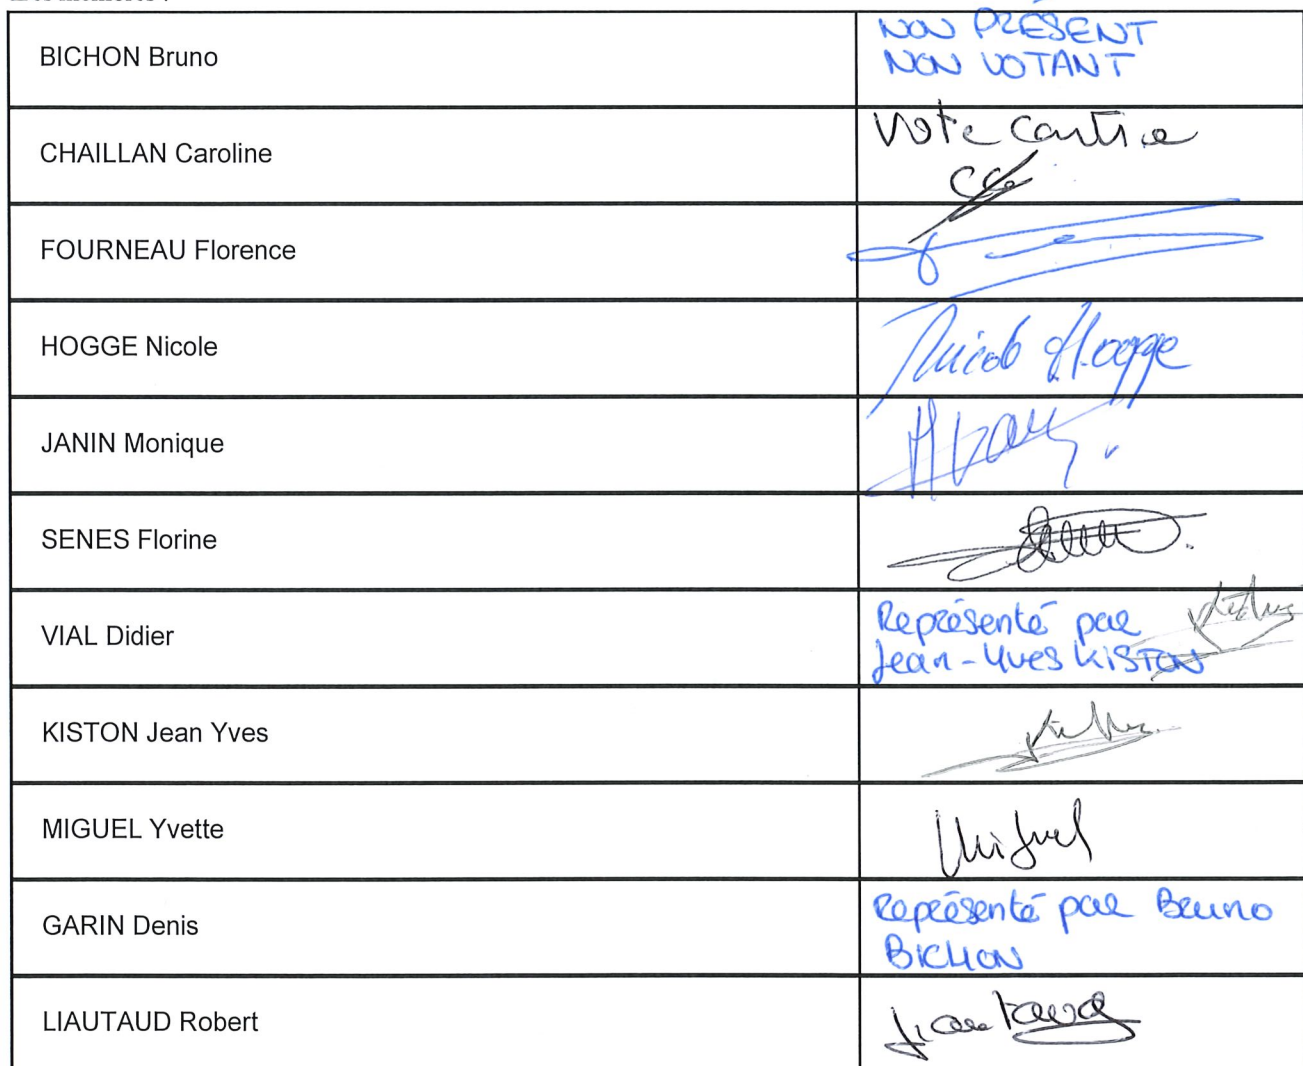 BICHON Bruno
NON PRÉSENT
NON VOTANT
CHAILLAN Caroline
Vote contre
FOURNEAU Florence
HOGGE Nicole
Nicole Hogge
JANIN Monique
SENES Florine
VIAL Didier
Représenté par
Jean-Yves KISTON
KISTON Jean Yves
MIGUEL Yvette
Miguel
GARIN Denis
Représenté par Bruno
BICHON
LIAUTAUD Robert